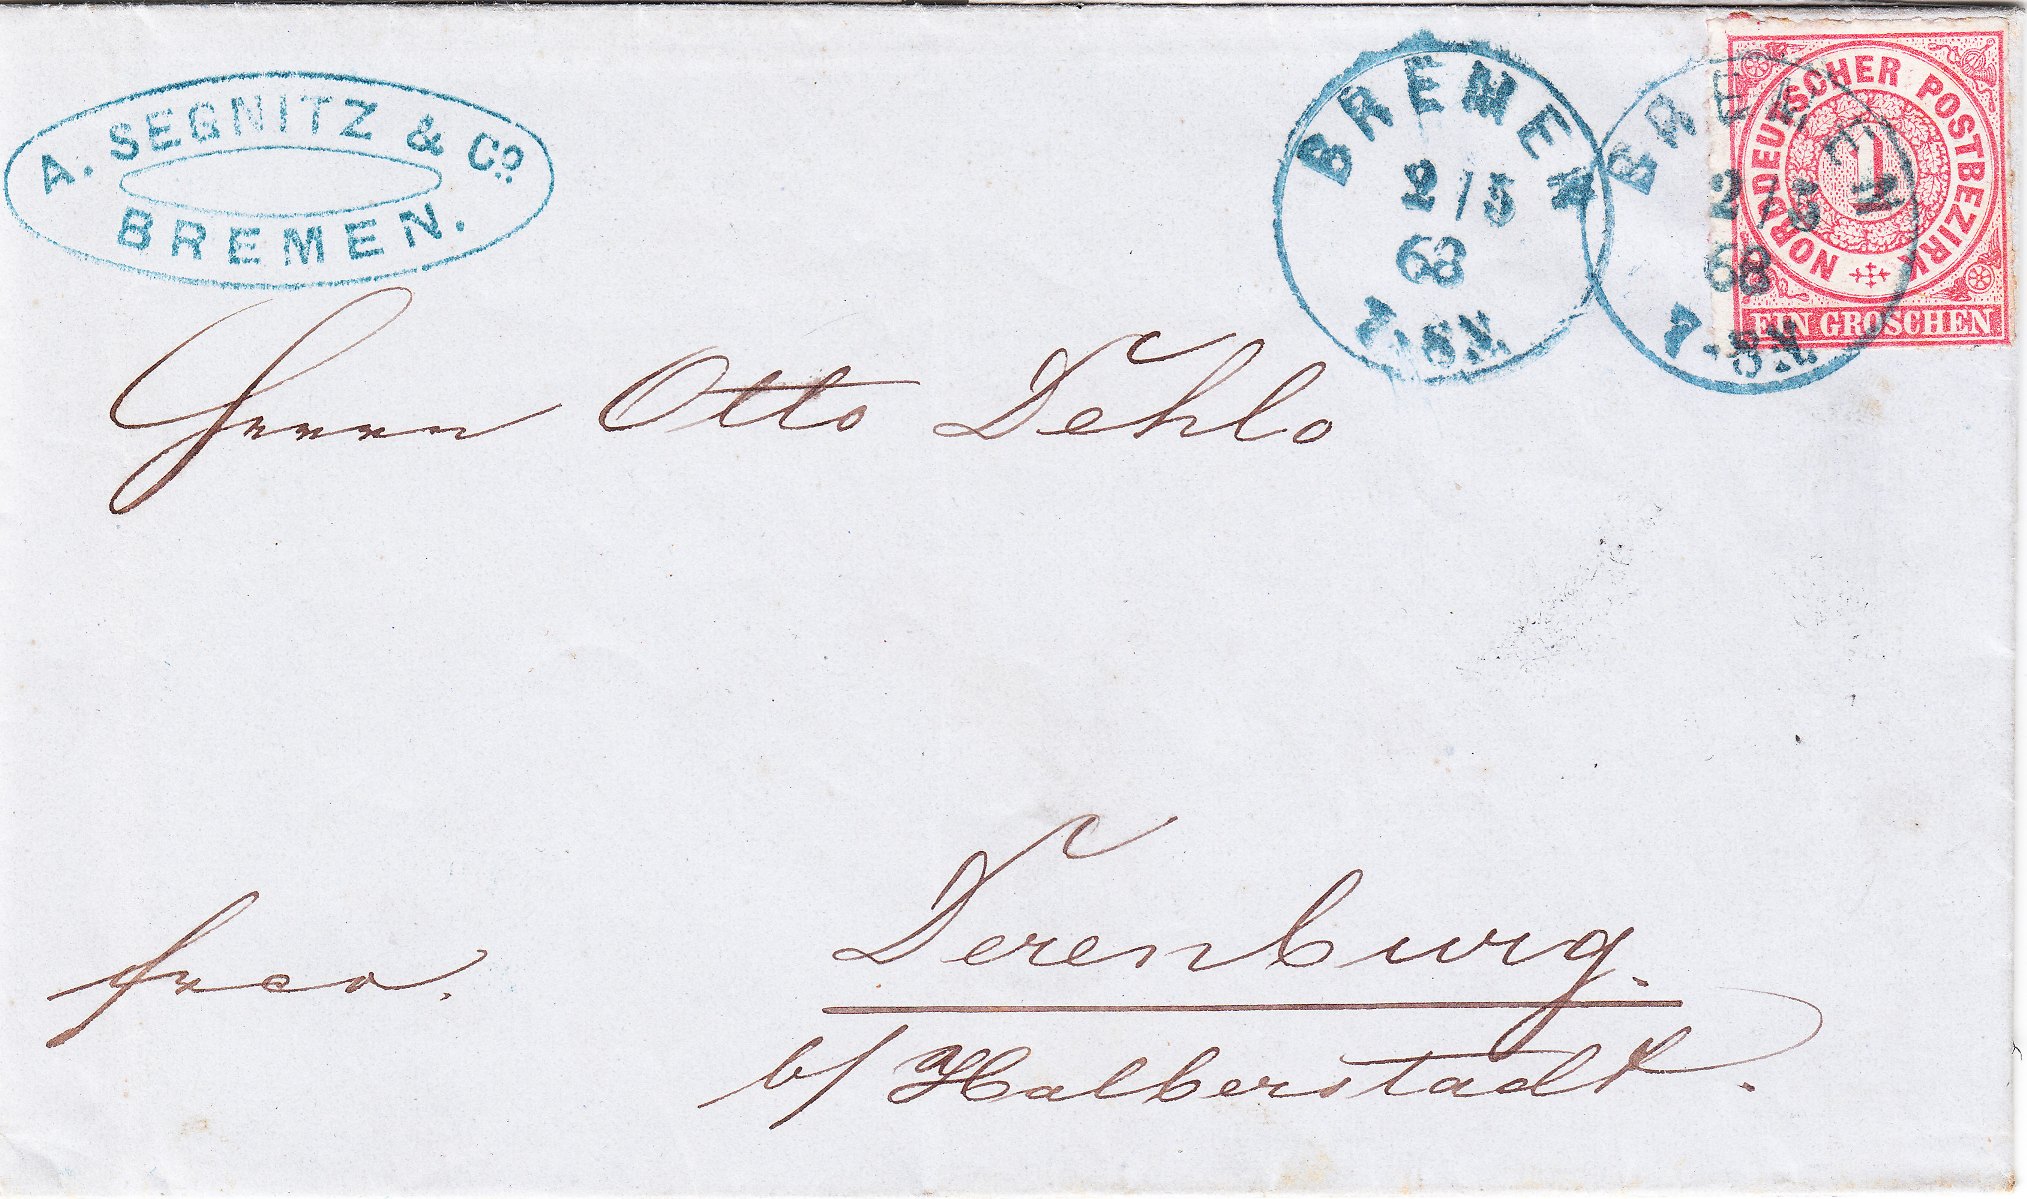 A. SEGNITZ & Co.
BREMEN.
BREMEN
2/5
68
7-8 V.
BREMEN
2/5
68
7-8 V.
NORDDEUTSCHER POSTBEZIRK
1
EIN GROSCHEN
Herrn Otto Dehlo
Derenburg.
frco.
b/ Halberstadt.